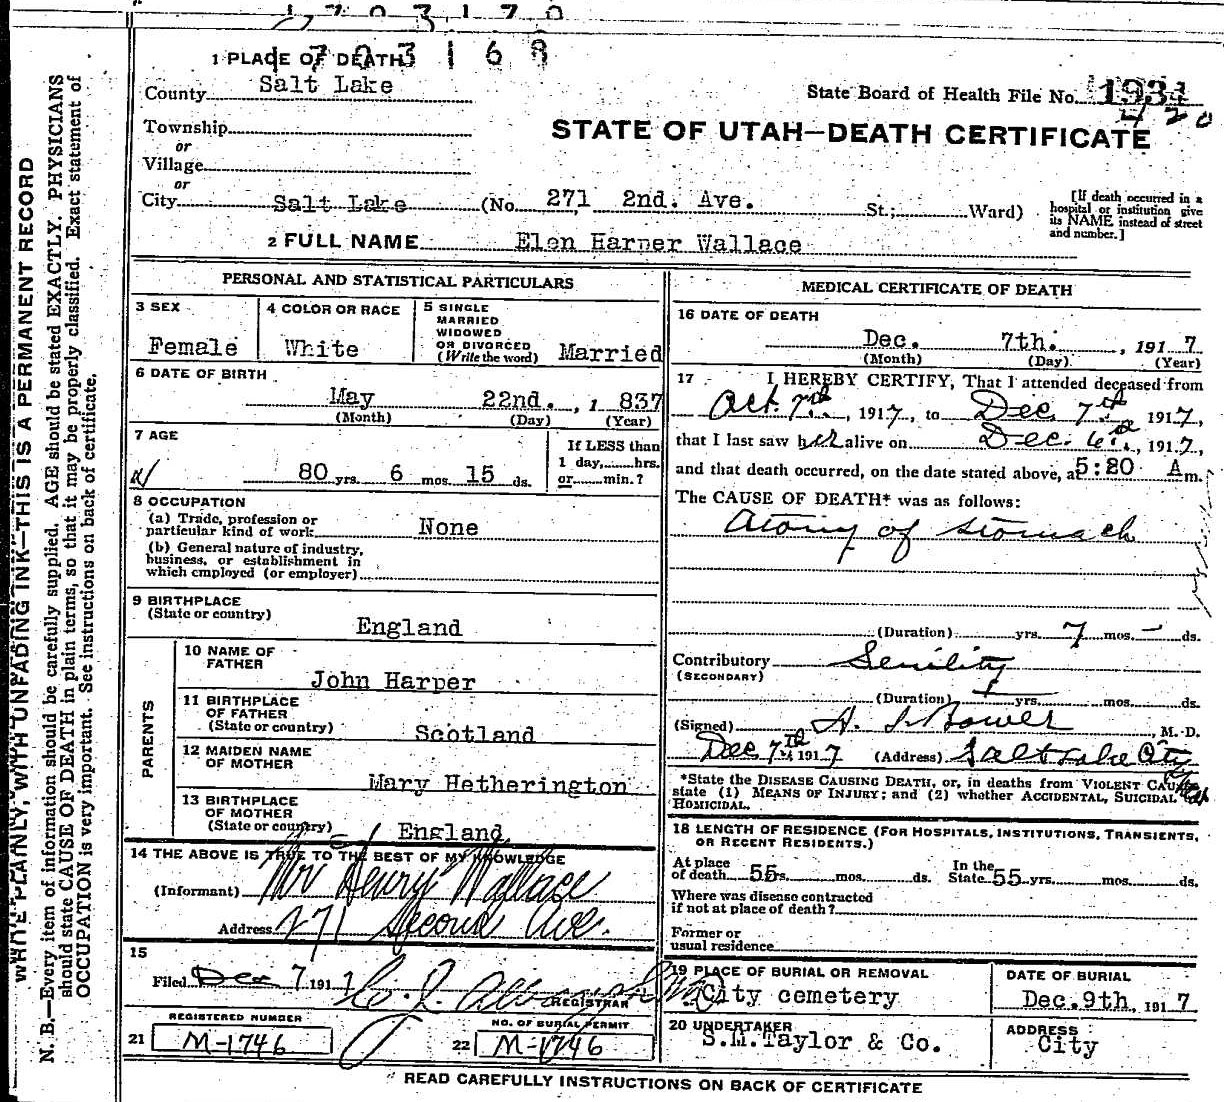 1703170
1703168
1 PLACE OF DEATH
County Salt Lake
State Board of Health File No. 1934
420
Township
or
Village
or
City Salt Lake (No. 271 2nd. Ave. St.; Ward)
[If death occurred in a hospital or institution give its NAME instead of street and number.]
STATE OF UTAH—DEATH CERTIFICATE
2 FULL NAME Elen Harper Wallace
PERSONAL AND STATISTICAL PARTICULARS
3 SEX
Female
4 COLOR OR RACE
White
5 SINGLE
MARRIED
WIDOWED
OR DIVORCED
(Write the word) Married
6 DATE OF BIRTH
May 22nd., 1 837
(Month) (Day) (Year)
7 AGE
80 yrs. 6 mos. 15 ds.
If LESS than
1 day,......hrs.
or......min.?
8 OCCUPATION
(a) Trade, profession or
particular kind of work None
(b) General nature of industry,
business, or establishment in
which employed (or employer)
9 BIRTHPLACE
(State or country)
England
PARENTS
10 NAME OF
FATHER
John Harper
11 BIRTHPLACE
OF FATHER
(State or country)
Scotland
12 MAIDEN NAME
OF MOTHER
Mary Hetherington
13 BIRTHPLACE
OF MOTHER
(State or country) England
14 THE ABOVE IS TRUE TO THE BEST OF MY KNOWLEDGE
(Informant) Mr Henry Wallace
Address 271 Second Ave.
15
Filed Dec 7 1917
REGISTRAR
REGISTERED NUMBER
21 M-1746
NO. OF BURIAL PERMIT
22 M-1746
MEDICAL CERTIFICATE OF DEATH
16 DATE OF DEATH
Dec. 7th. , 191 7
(Month) (Day) (Year)
17 I HEREBY CERTIFY, That I attended deceased from
Oct. 7th, 1917, to Dec 7th 1917,
that I last saw her alive on Dec. 6th, 1917,
and that death occurred, on the date stated above, at 5:20 A m.
The CAUSE OF DEATH* was as follows:
Atony of Stomach
(Duration) yrs. 7 mos. – ds.
Contributory Senility
(SECONDARY)
(Duration) yrs. mos. ds.
(Signed) A. S. Bower, M. D.
Dec 7th 1917 (Address) Salt Lake City
Utah
*State the DISEASE CAUSING DEATH, or, in deaths from VIOLENT CAUSES
state (1) MEANS OF INJURY; and (2) whether ACCIDENTAL, SUICIDAL or
HOMICIDAL.
18 LENGTH OF RESIDENCE (FOR HOSPITALS, INSTITUTIONS, TRANSIENTS,
OR RECENT RESIDENTS.)
At place
of death 55 yrs. mos. ds. In the
State 55 yrs. mos. ds.
Where was disease contracted
if not at place of death?
Former or
usual residence
19 PLACE OF BURIAL OR REMOVAL
City cemetery
DATE OF BURIAL
Dec. 9th, 191 7
20 UNDERTAKER
S.M.Taylor & Co.
ADDRESS
City
READ CAREFULLY INSTRUCTIONS ON BACK OF CERTIFICATE
WRITE PLAINLY, WITH UNFADING INK—THIS IS A PERMANENT RECORD
N. B.—Every item of information should be carefully supplied. AGE should be stated EXACTLY. PHYSICIANS
should state CAUSE OF DEATH in plain terms, so that it may be properly classified. Exact statement of
OCCUPATION is very important. See instructions on back of certificate.